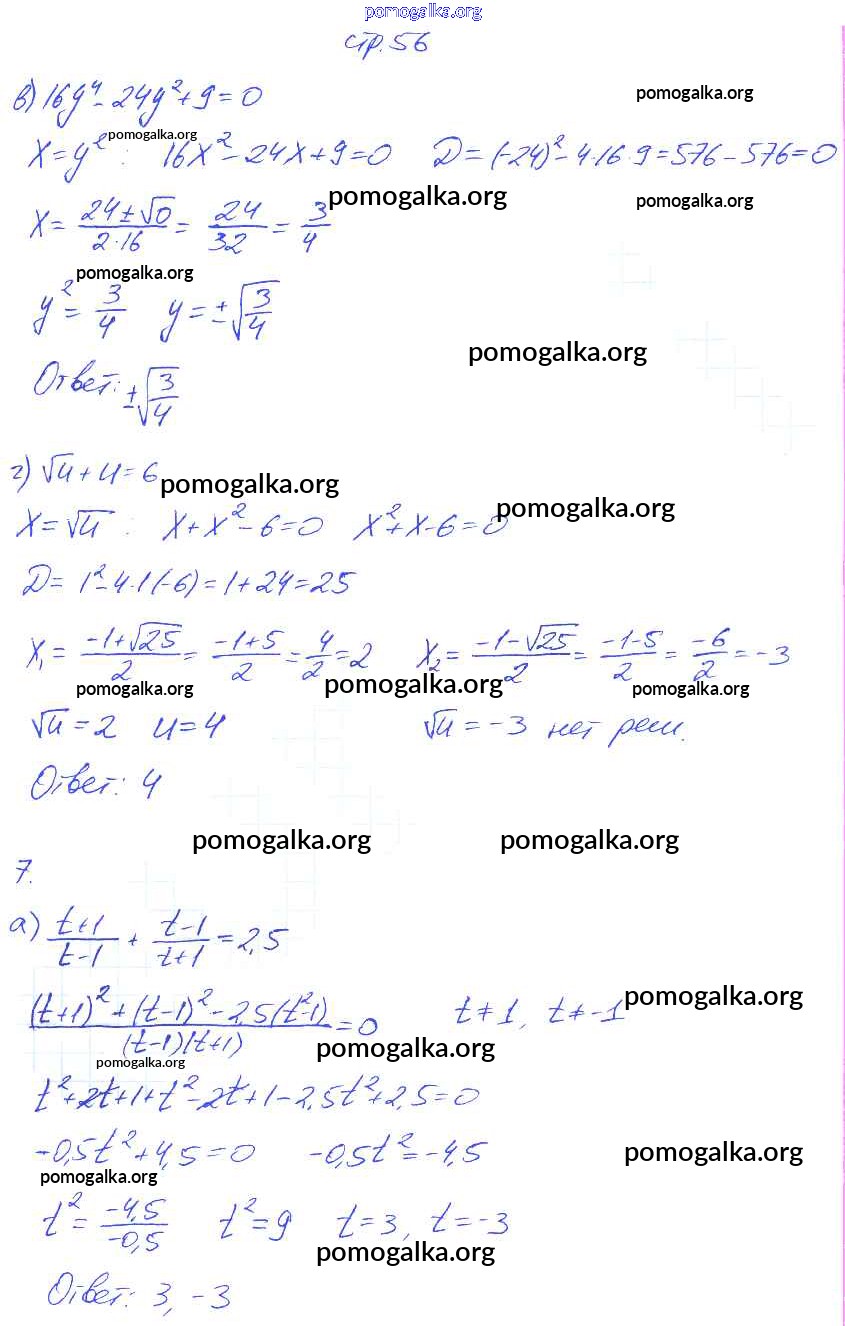 pomogalka.org
стр. 56
в) 16y⁴ - 24y² + 9 = 0 pomogalka.org
pomogalka.org
x = y² : 16x² - 24x + 9 = 0 D = (-24)² - 4·16·9 = 576 - 576 = 0
pomogalka.org pomogalka.org
x = (24 ± √0)/(2·16) = 24/32 = 3/4
pomogalka.org
y² = 3/4 y = ±√(3/4)
pomogalka.org
Ответ: ±√(3/4)
г) √u + u = 6 pomogalka.org
x = √u : x + x² - 6 = 0 x² + x - 6 = 0 pomogalka.org
D = 1² - 4·1(-6) = 1 + 24 = 25
x₁ = (-1 + √25)/2 = (-1 + 5)/2 = 4/2 = 2 x₂ = (-1 - √25)/2 = (-1 - 5)/2 = -6/2 = -3
pomogalka.org pomogalka.org pomogalka.org
√u = 2 u = 4 √u = -3 нет реш.
Ответ: 4
pomogalka.org pomogalka.org
7.
а) (t+1)/(t-1) + (t-1)/(t+1) = 2,5
((t+1)² + (t-1)² - 2,5(t²-1))/((t-1)(t+1)) = 0 t ≠ 1, t ≠ -1 pomogalka.org
pomogalka.org pomogalka.org
t² + 2t + 1 + t² - 2t + 1 - 2,5t² + 2,5 = 0
-0,5t² + 4,5 = 0 -0,5t² = -4,5 pomogalka.org
pomogalka.org
t² = -4,5/-0,5 t² = 9 t = 3, t = -3
pomogalka.org
Ответ: 3, -3